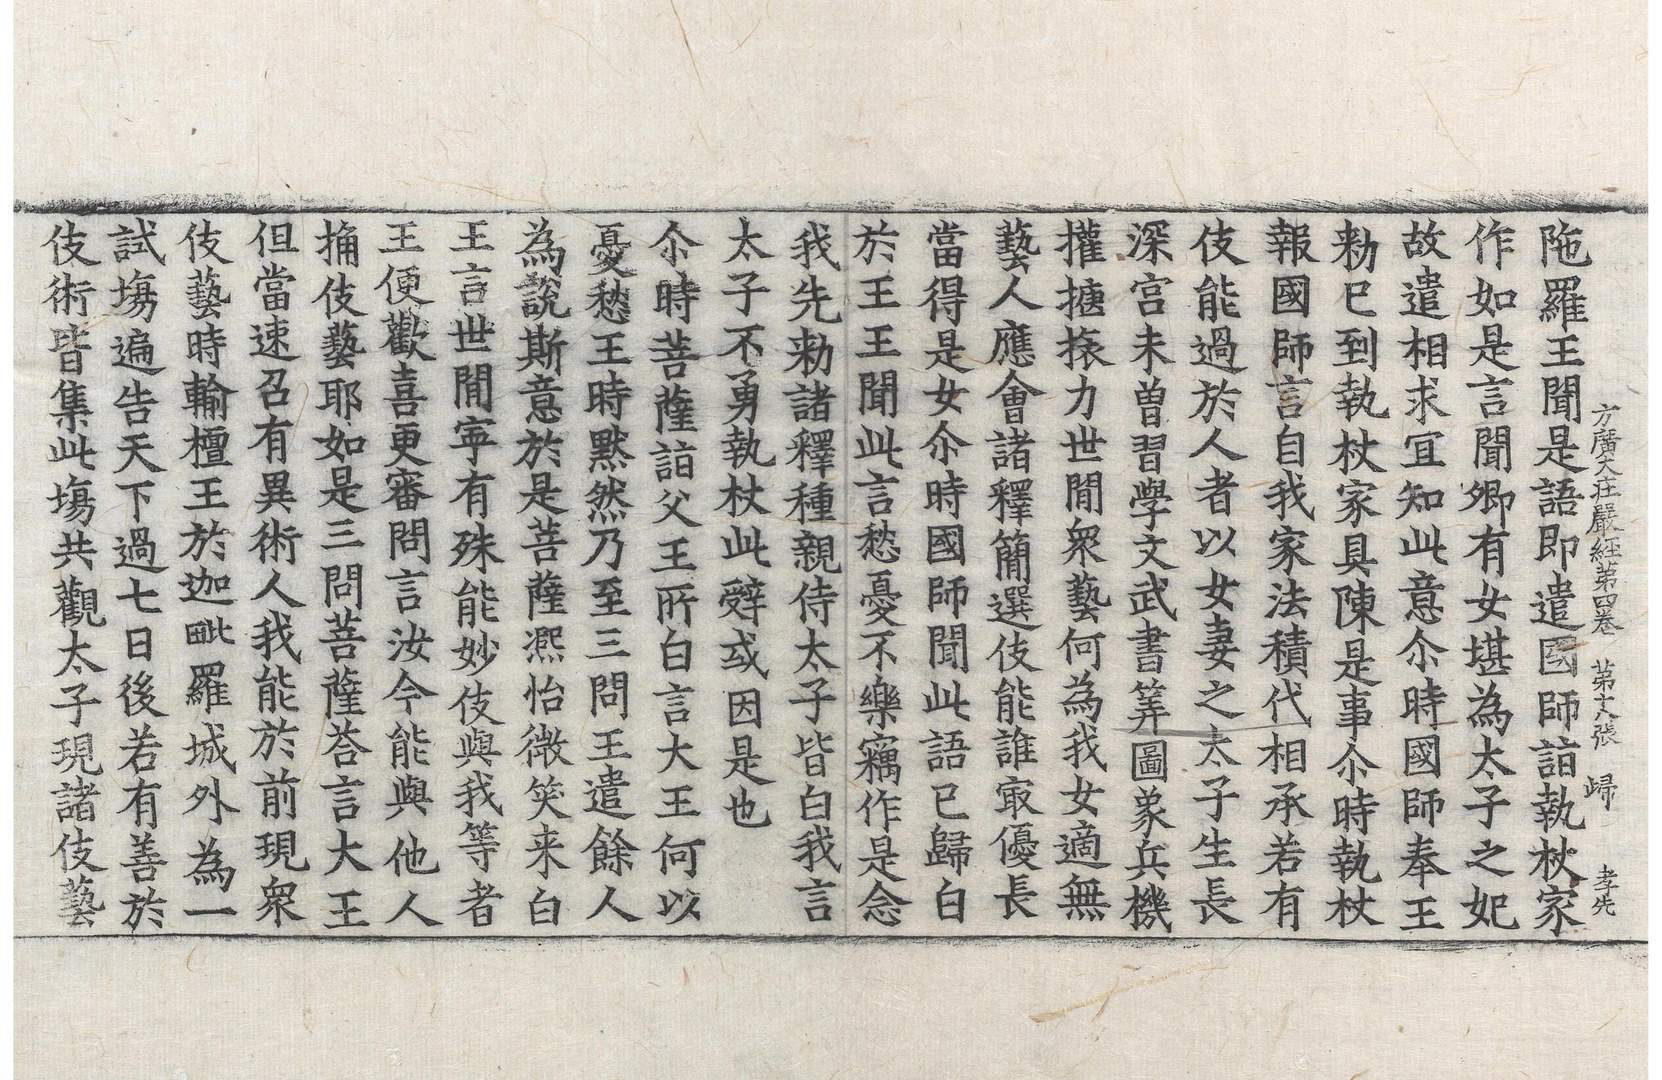 方廣大莊嚴經第四卷 第十八張 歸 孝先
陁羅王聞是語即遣國師詣執杖家
作如是言聞卿有女堪為太子之妃
故遣相求宜知此意尒時國師奉王
勑已到執杖家具陳是事尒時執杖
報國師言自我家法積代相承若有
伎能過於人者以女妻之太子生長
深宫未曽習學文武書筭圖象兵機
權搪捔力世間衆藝何為我女適無
藝人應會諸釋簡選伎能誰㝡優長
當得是女尒時國師聞此語已歸白
於王王聞此言愁憂不樂竊作是念
我先勑諸釋種親侍太子皆白我言
太子不勇執杖此辤或因是也
尒時菩薩詣父王所白言大王何以
憂愁王時黙然乃至三問王遣餘人
為說斯意於是菩薩凞怡微笑来白
王言世間寧有殊能妙伎與我等者
王便歡喜更審問言汝今能與他人
捔伎藝耶如是三問菩薩荅言大王
但當速召有異術人我能於前現衆
伎藝時輸檀王於迦毗羅城外為一
試塲遍告天下過七日後若有善於
伎術皆集此塲共觀太子現諸伎藝